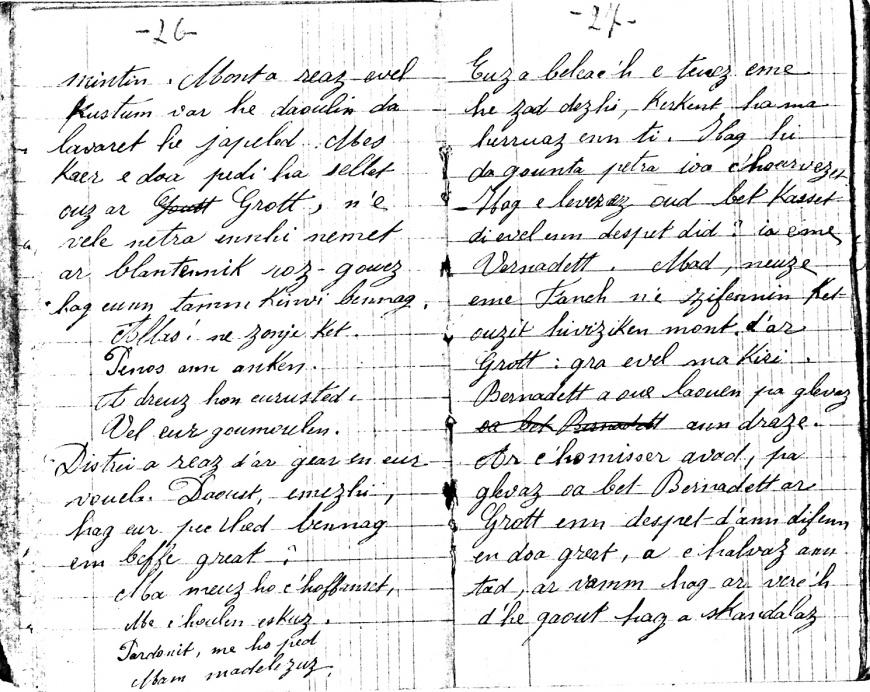 -26-
mintin. Mont a reaz evel
Kustum var he daoulin da
lavaret he japeled. Mes
Kaer e doa pedi ha sellet
ouz ar Groutt Grott, n'e
vele netra ennhi nemet
ar blantennik roz-gouez
hag eunn tamm Kinvi bennag.
Allas! ne zonje Ket.
Penos ann anken.
A dreuz hon eurusted.
Vel eur goumoulen.
Distrei a reaz d'ar gear en eur
vouela. Daoust, emezhi,
hag eur pec'hed bennag
em beffe great?
Ma meuz ho c'hoffanset,
Me c'houlen eskuz.
Pardonit, me ho ped
Mam madelezuz.
-27-
Euz a beleac'h e teuez eme
he zad dezhi, Kerkent ha ma
herruaz enn ti. Hag hi
da gounta petra ioa c'hoarvezet
- Hag e leverez oud bet Kasset
di evel enn despet did? ia eme
Vernadett. Mad, neuze
eme Fanch n'e zifennin Ket
ouzit hiviziken mont d'ar
Grott: gra evel ma Kiri.
Bernadett a oue laouen pa glevaz
oa bet Bernadett ann draze.
Ar c'homisser avad, pa
glevaz oa bet Bernadett ar
Grott enn despet d'ann difenn
en doa great, a c'halvaz ann
tad, ar vamm hag ar verc'h
d'he gaout hag a skandalaz